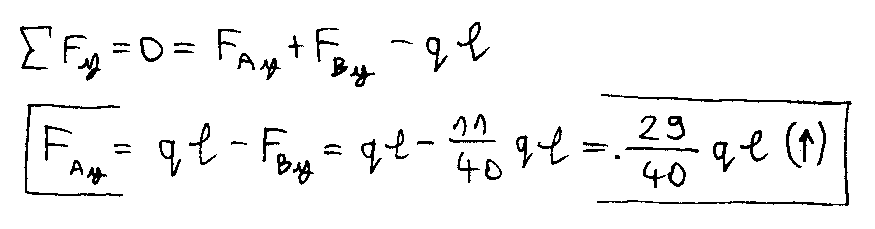 ∑ F_y = 0 = F_Ay + F_By - q l
F_Ay = q l - F_By = q l - 11/40 q l = 29/40 q l (↑)